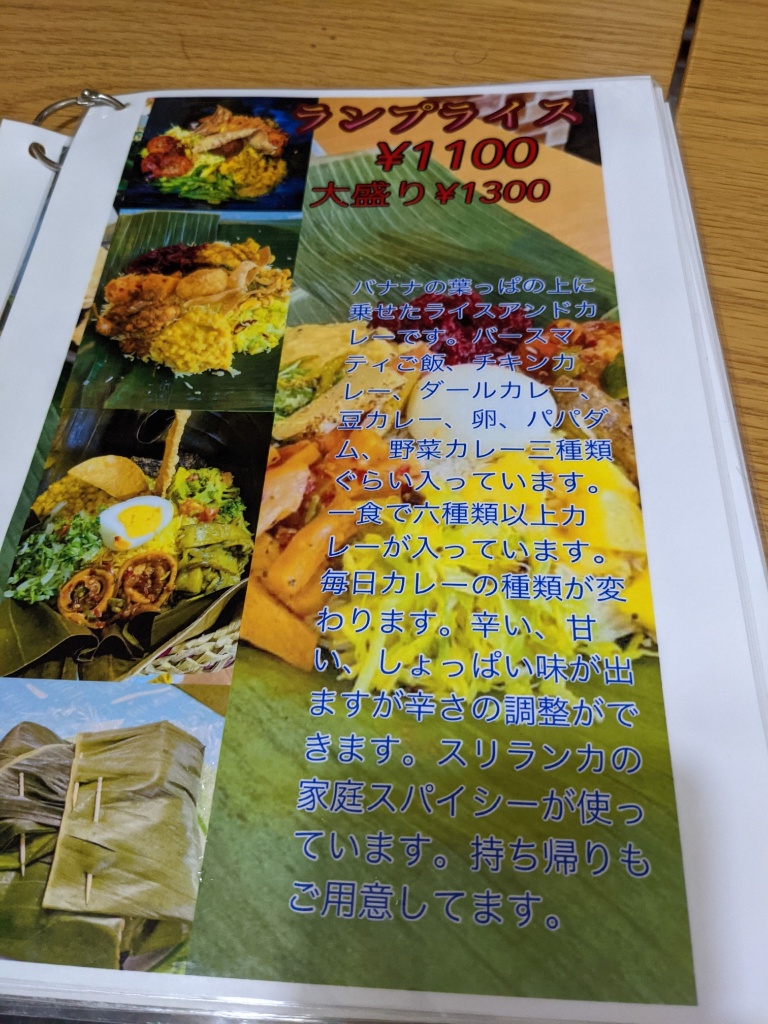 ランプライス
¥1100
大盛り¥1300
バナナの葉っぱの上に
乗せたライスアンドカ
レーです。バースマ
ティご飯、チキンカ
レー、ダールカレー、
豆カレー、卵、パパダ
ム、野菜カレー三種類
ぐらい入っています。
一食で六種類以上カ
レーが入っています。
毎日カレーの種類が変
わります。辛い、甘
い、しょっぱい味が出
ますが辛さの調整がで
きます。スリランカの
家庭スパイシーが使っ
ています。持ち帰りも
ご用意してます。